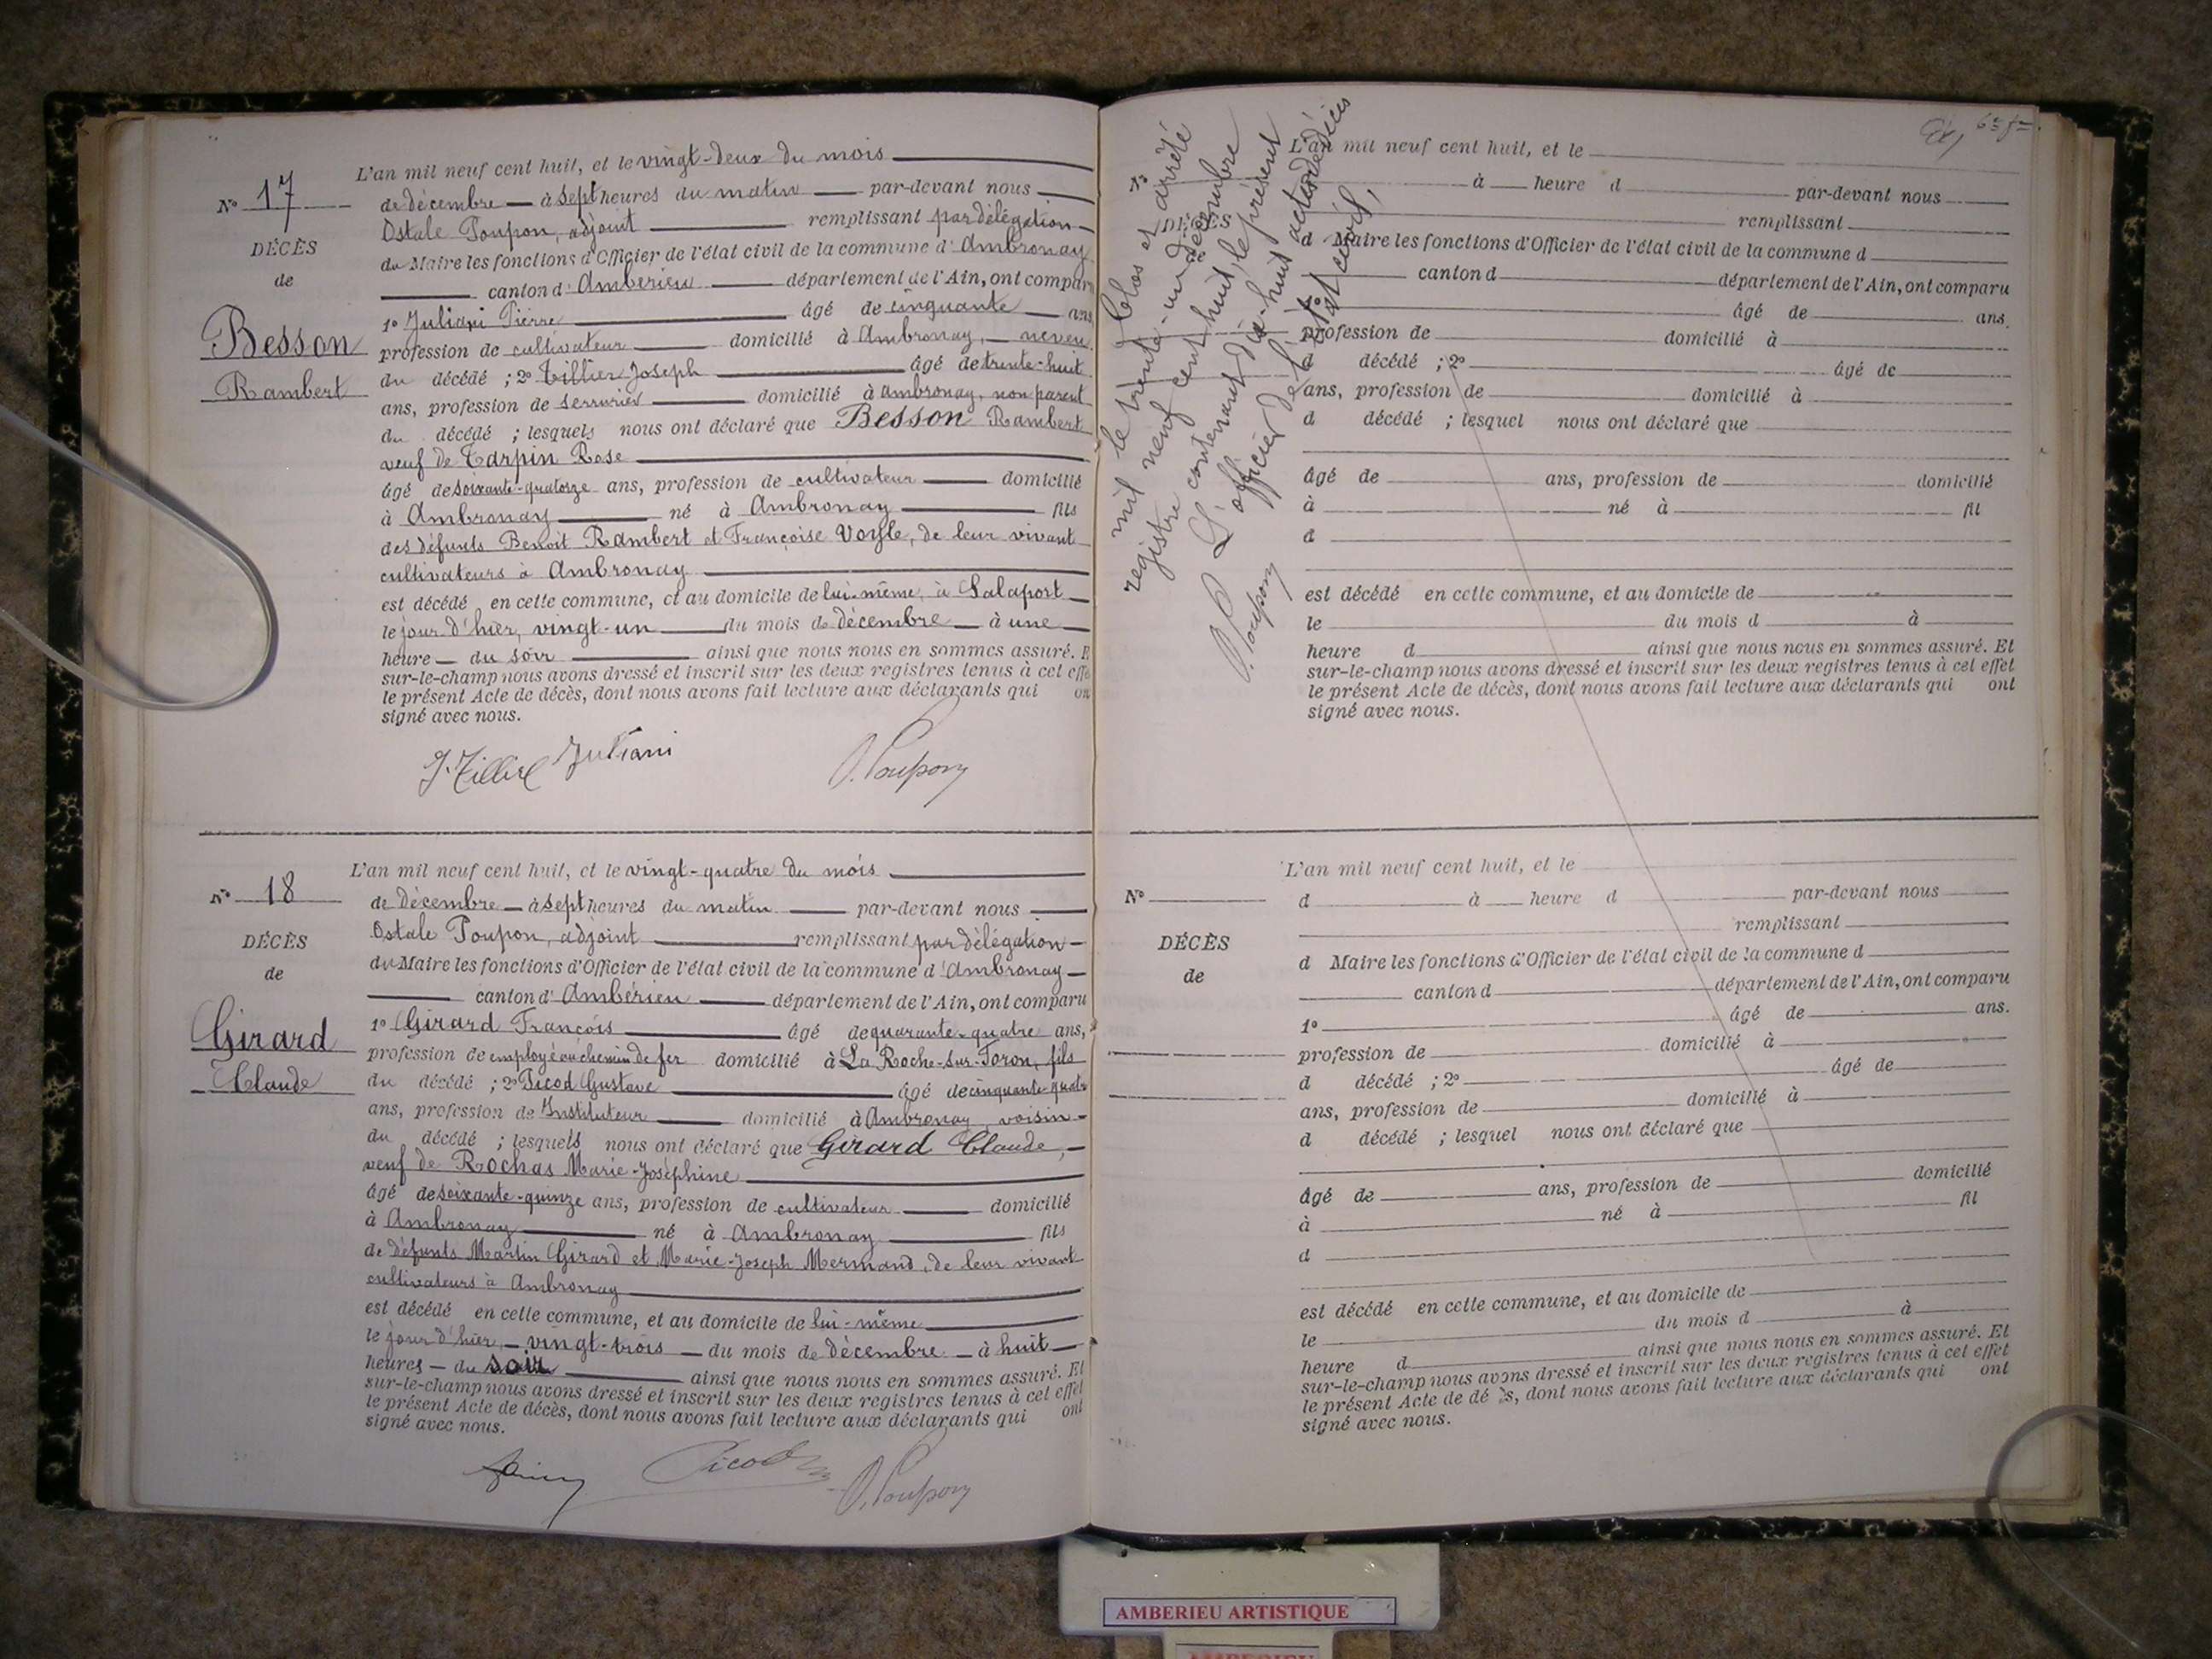 N° 17
DÉCÈS
de
Besson
Rambert
L'an mil neuf cent huit, et le vingt-deux du mois
de décembre à sept heures du matin par-devant nous
Ostale Poupon, adjoint remplissant par délégation
du Maire les fonctions d'Officier de l'état civil de la commune d'Ambronay
canton d'Ambérieu département de l'Ain, ont comparu
1° Juliani Pierre âgé de cinquante ans
profession de cultivateur domicilié à Ambronay, neveu
du décédé ; 2° Tillier Joseph âgé de trente-huit
ans, profession de serrurier domicilié à Ambronay, non parent
du décédé ; lesquels nous ont déclaré que Besson Rambert
veuf de Tarpin Rose
âgé de soixante-quatorze ans, profession de cultivateur domicilié
à Ambronay né à Ambronay fils
des défunts Benoit Rambert et Françoise, de leur vivant
cultivateurs à Ambronay
est décédé en cette commune, et au domicile de lui-même, à Salaport
le jour d'hier, vingt-un du mois de décembre à une
heure du soir ainsi que nous nous en sommes assuré. E
sur-le-champ nous avons dressé et inscrit sur les deux registres tenus à cet effe
le présent Acte de décès, dont nous avons fait lecture aux déclarants qui on
signé avec nous.
J. Tillier Juliani O. Poupon
N° 18
DÉCÈS
de
Girard
Claude
L'an mil neuf cent huit, et le vingt-quatre du mois
de décembre à sept heures du matin par-devant nous
Ostale Poupon, adjoint remplissant par délégation
du Maire les fonctions d'Officier de l'état civil de la commune d'Ambronay
canton d'Ambérieu département de l'Ain, ont comparu
1° Girard François âgé de quarante-quatre ans,
profession de employé au chemin de fer domicilié à La Roche-sur-Foron, fils
du décédé ; 2° Picod Gustave âgé de cinquante-quatre
ans, profession de Instituteur domicilié à Ambronay, voisin
du décédé ; lesquels nous ont déclaré que Girard Claude,
veuf de Rochas Marie-Joséphine
âgé de soixante-quinze ans, profession de cultivateur domicilié
à Ambronay né à Ambronay fils
de défunts Martin Girard et Marie-Joseph Mermand, de leur vivant
cultivateurs à Ambronay
est décédé en cette commune, et au domicile de lui-même
le jour d'hier, vingt-trois du mois de décembre à huit
heures du soir ainsi que nous nous en sommes assuré. Et
sur-le-champ nous avons dressé et inscrit sur les deux registres tenus à cet effet
le présent Acte de décès, dont nous avons fait lecture aux déclarants qui ont
signé avec nous.
Picod O. Poupon
Clos et arrêté
le trente-un décembre
mil neuf cent huit, le présent
registre contenant dix-huit actes de décès
L'officier de l'état civil,
O. Poupon
N°
DÉCÈS
L'an mil neuf cent huit, et le
à heure d par-devant nous
remplissant
d Maire les fonctions d'Officier de l'état civil de la commune d
canton d département de l'Ain, ont comparu
1° âgé de ans.
profession de domicilié à
d décédé ; 2° âgé de
ans, profession de domicilié à
d décédé ; lesquel nous ont déclaré que
âgé de ans, profession de domicilié
à né à fil
d
est décédé en cette commune, et au domicile de
le du mois d à
heure d ainsi que nous nous en sommes assuré. Et
sur-le-champ nous avons dressé et inscrit sur les deux registres tenus à cet effet
le présent Acte de décès, dont nous avons fait lecture aux déclarants qui ont
signé avec nous.
N°
DÉCÈS
de
L'an mil neuf cent huit, et le
d à heure d par-devant nous
remplissant
d Maire les fonctions d'Officier de l'état civil de la commune d
canton d département de l'Ain, ont comparu
1° âgé de ans.
profession de domicilié à
d décédé ; 2° âgé de
ans, profession de domicilié à
d décédé ; lesquel nous ont déclaré que
âgé de ans, profession de domicilié
à né à fil
d
est décédé en cette commune, et au domicile de
le du mois d à
heure d ainsi que nous nous en sommes assuré. Et
sur-le-champ nous avons dressé et inscrit sur les deux registres tenus à cet effet
le présent Acte de dé s, dont nous avons fait lecture aux déclarants qui ont
signé avec nous.
AMBERIEU ARTISTIQUE
AMBERIEU